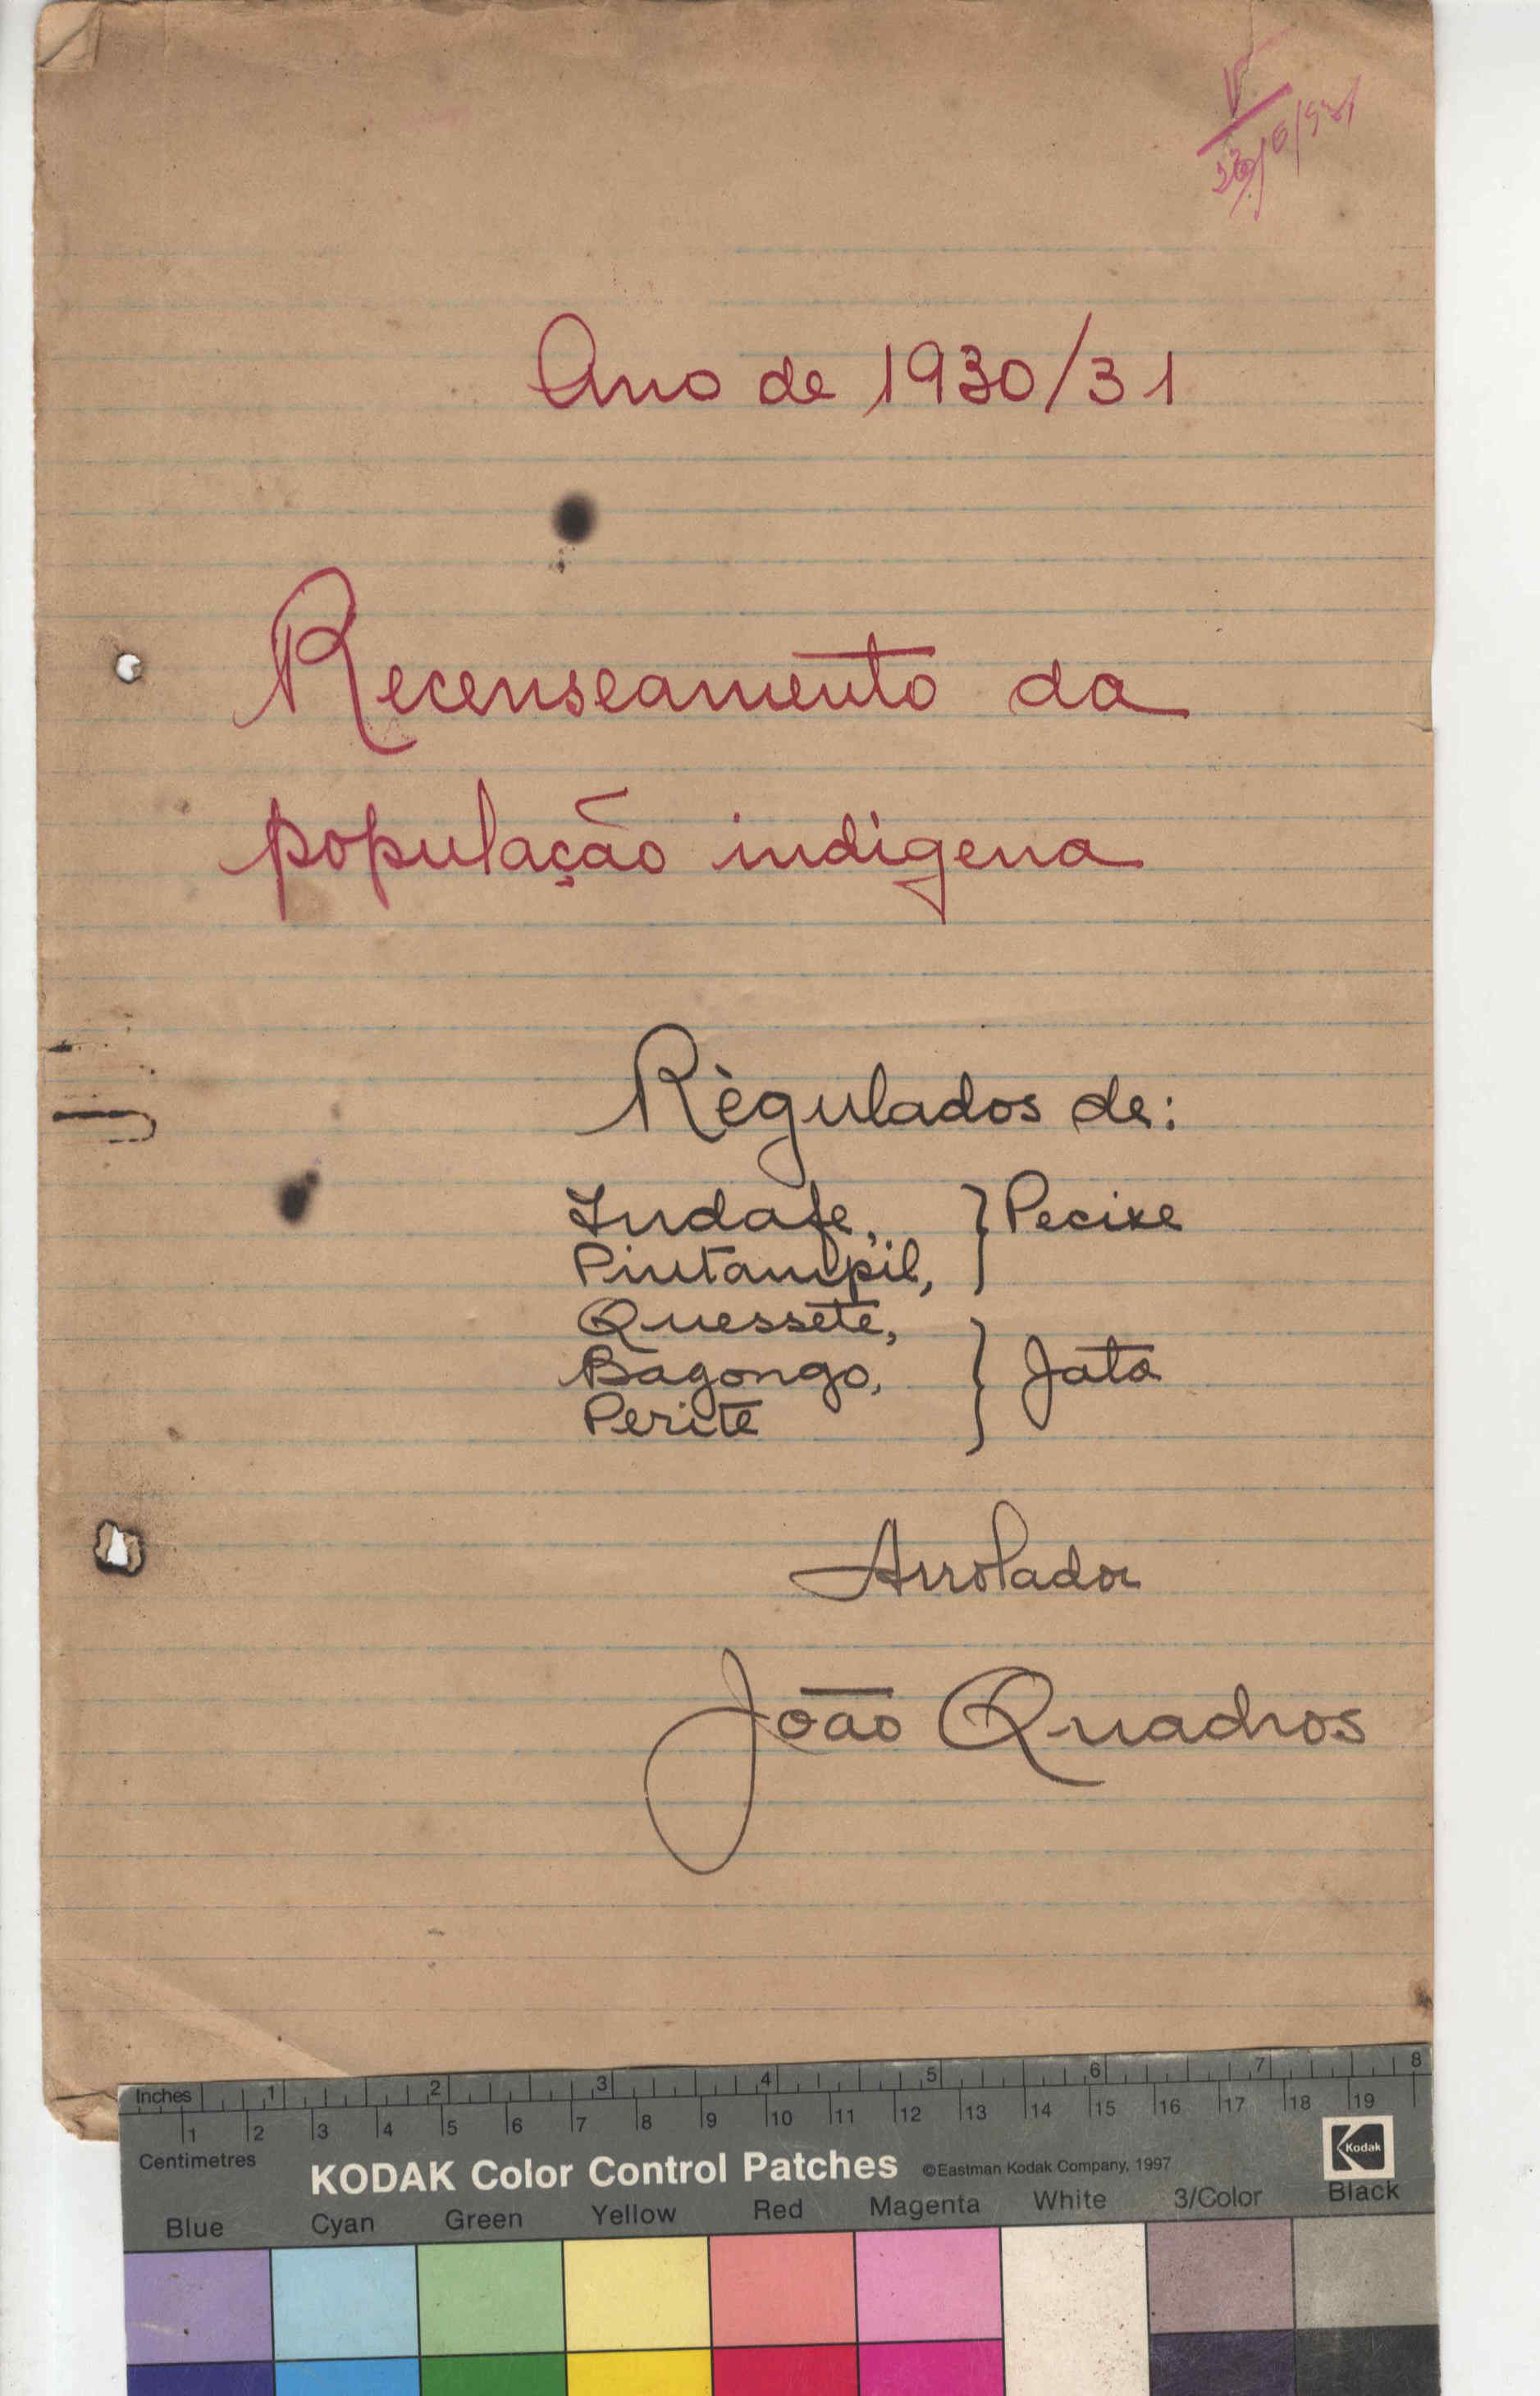 Ano de 1930/31
Recenseamento da
população indigena
Règulados de:
Indafe, } Pecixe
Pintampil,
Quessete,
Bagongo, } Jata
Perite
Arrolador
João Quadros
Inches 1 2 3 4 5 6 7 8
1 2 3 4 5 6 7 8 9 10 11 12 13 14 15 16 17 18 19
Centimetres
KODAK Color Control Patches ©Eastman Kodak Company, 1997 Kodak
Blue Cyan Green Yellow Red Magenta White 3/Color Black